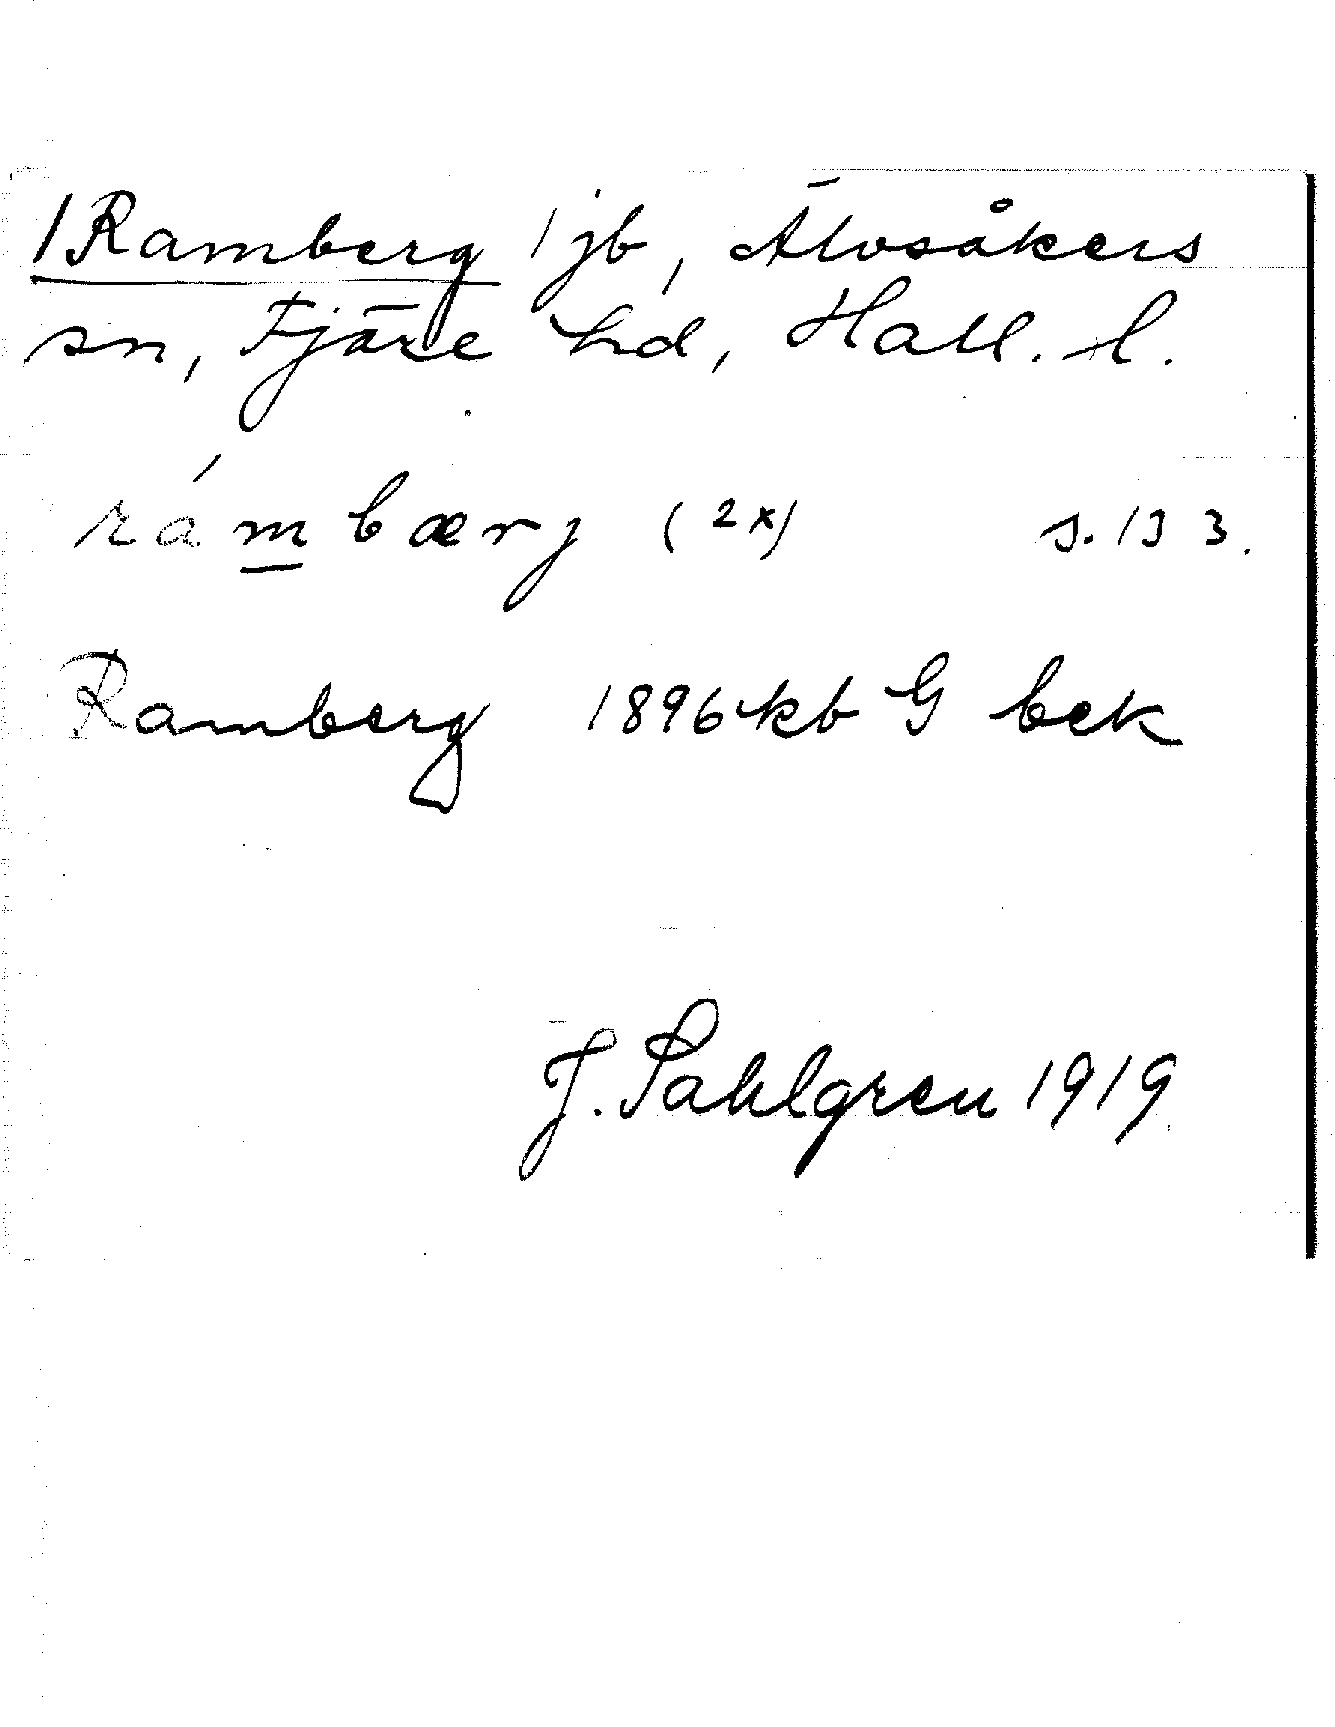 /Ramberg / jb, Älvsåkers
sn, Fjäre hd, Hall. l.
rámbærj (2x) s. 133.
Ramberg 1896 kb G bek
J. Sahlgren 1919